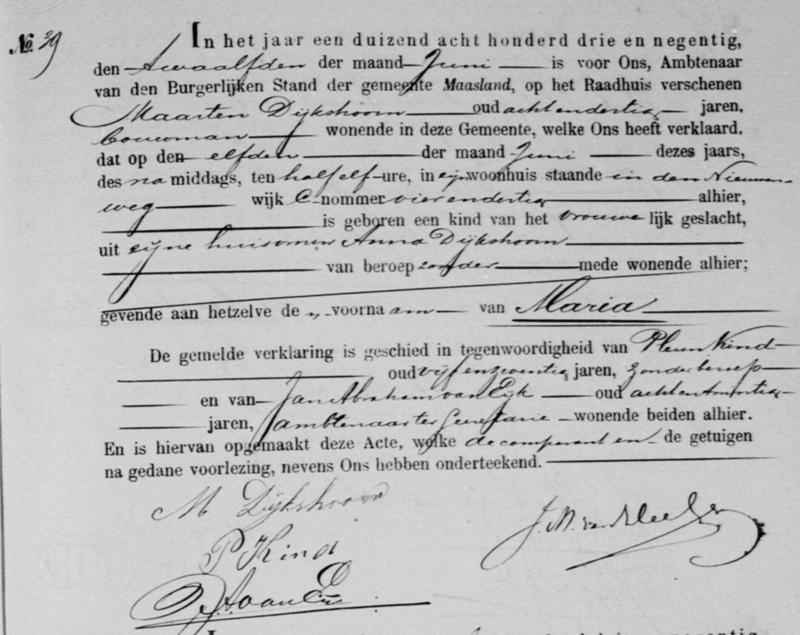 No 39
In het jaar een duizend acht honderd drie en negentig,
den twaalfden der maand Juni is voor Ons, Ambtenaar
van den Burgerlijken Stand der gemeente Maasland, op het Raadhuis verschenen
Maarten Dijkshoorn oud achtendertig jaren,
bouwman wonende in deze Gemeente, welke Ons heeft verklaard,
dat op den elfden der maand Juni dezes jaars,
des na middags, ten half elf ure, in zijn woonhuis staande in den Nieuwen-
weg wijk C nommer vierendertig alhier,
is geboren een kind van het vrouwe lijk geslacht,
uit zijne huisvrouw Anna Dijkshoorn
van beroep zonder mede wonende alhier;
gevende aan hetzelve de voorna am van Maria
De gemelde verklaring is geschied in tegenwoordigheid van Pleun Kind
oud vijfenzeventig jaren, zonder beroep
en van Jan Abraham van Eyk oud achtentwintig
jaren, ambtenaar ter Secretarie wonende beiden alhier.
En is hiervan opgemaakt deze Acte, welke de comparant en de getuigen
na gedane voorlezing, nevens Ons hebben onderteekend.
M Dijkshoorn
P Kind